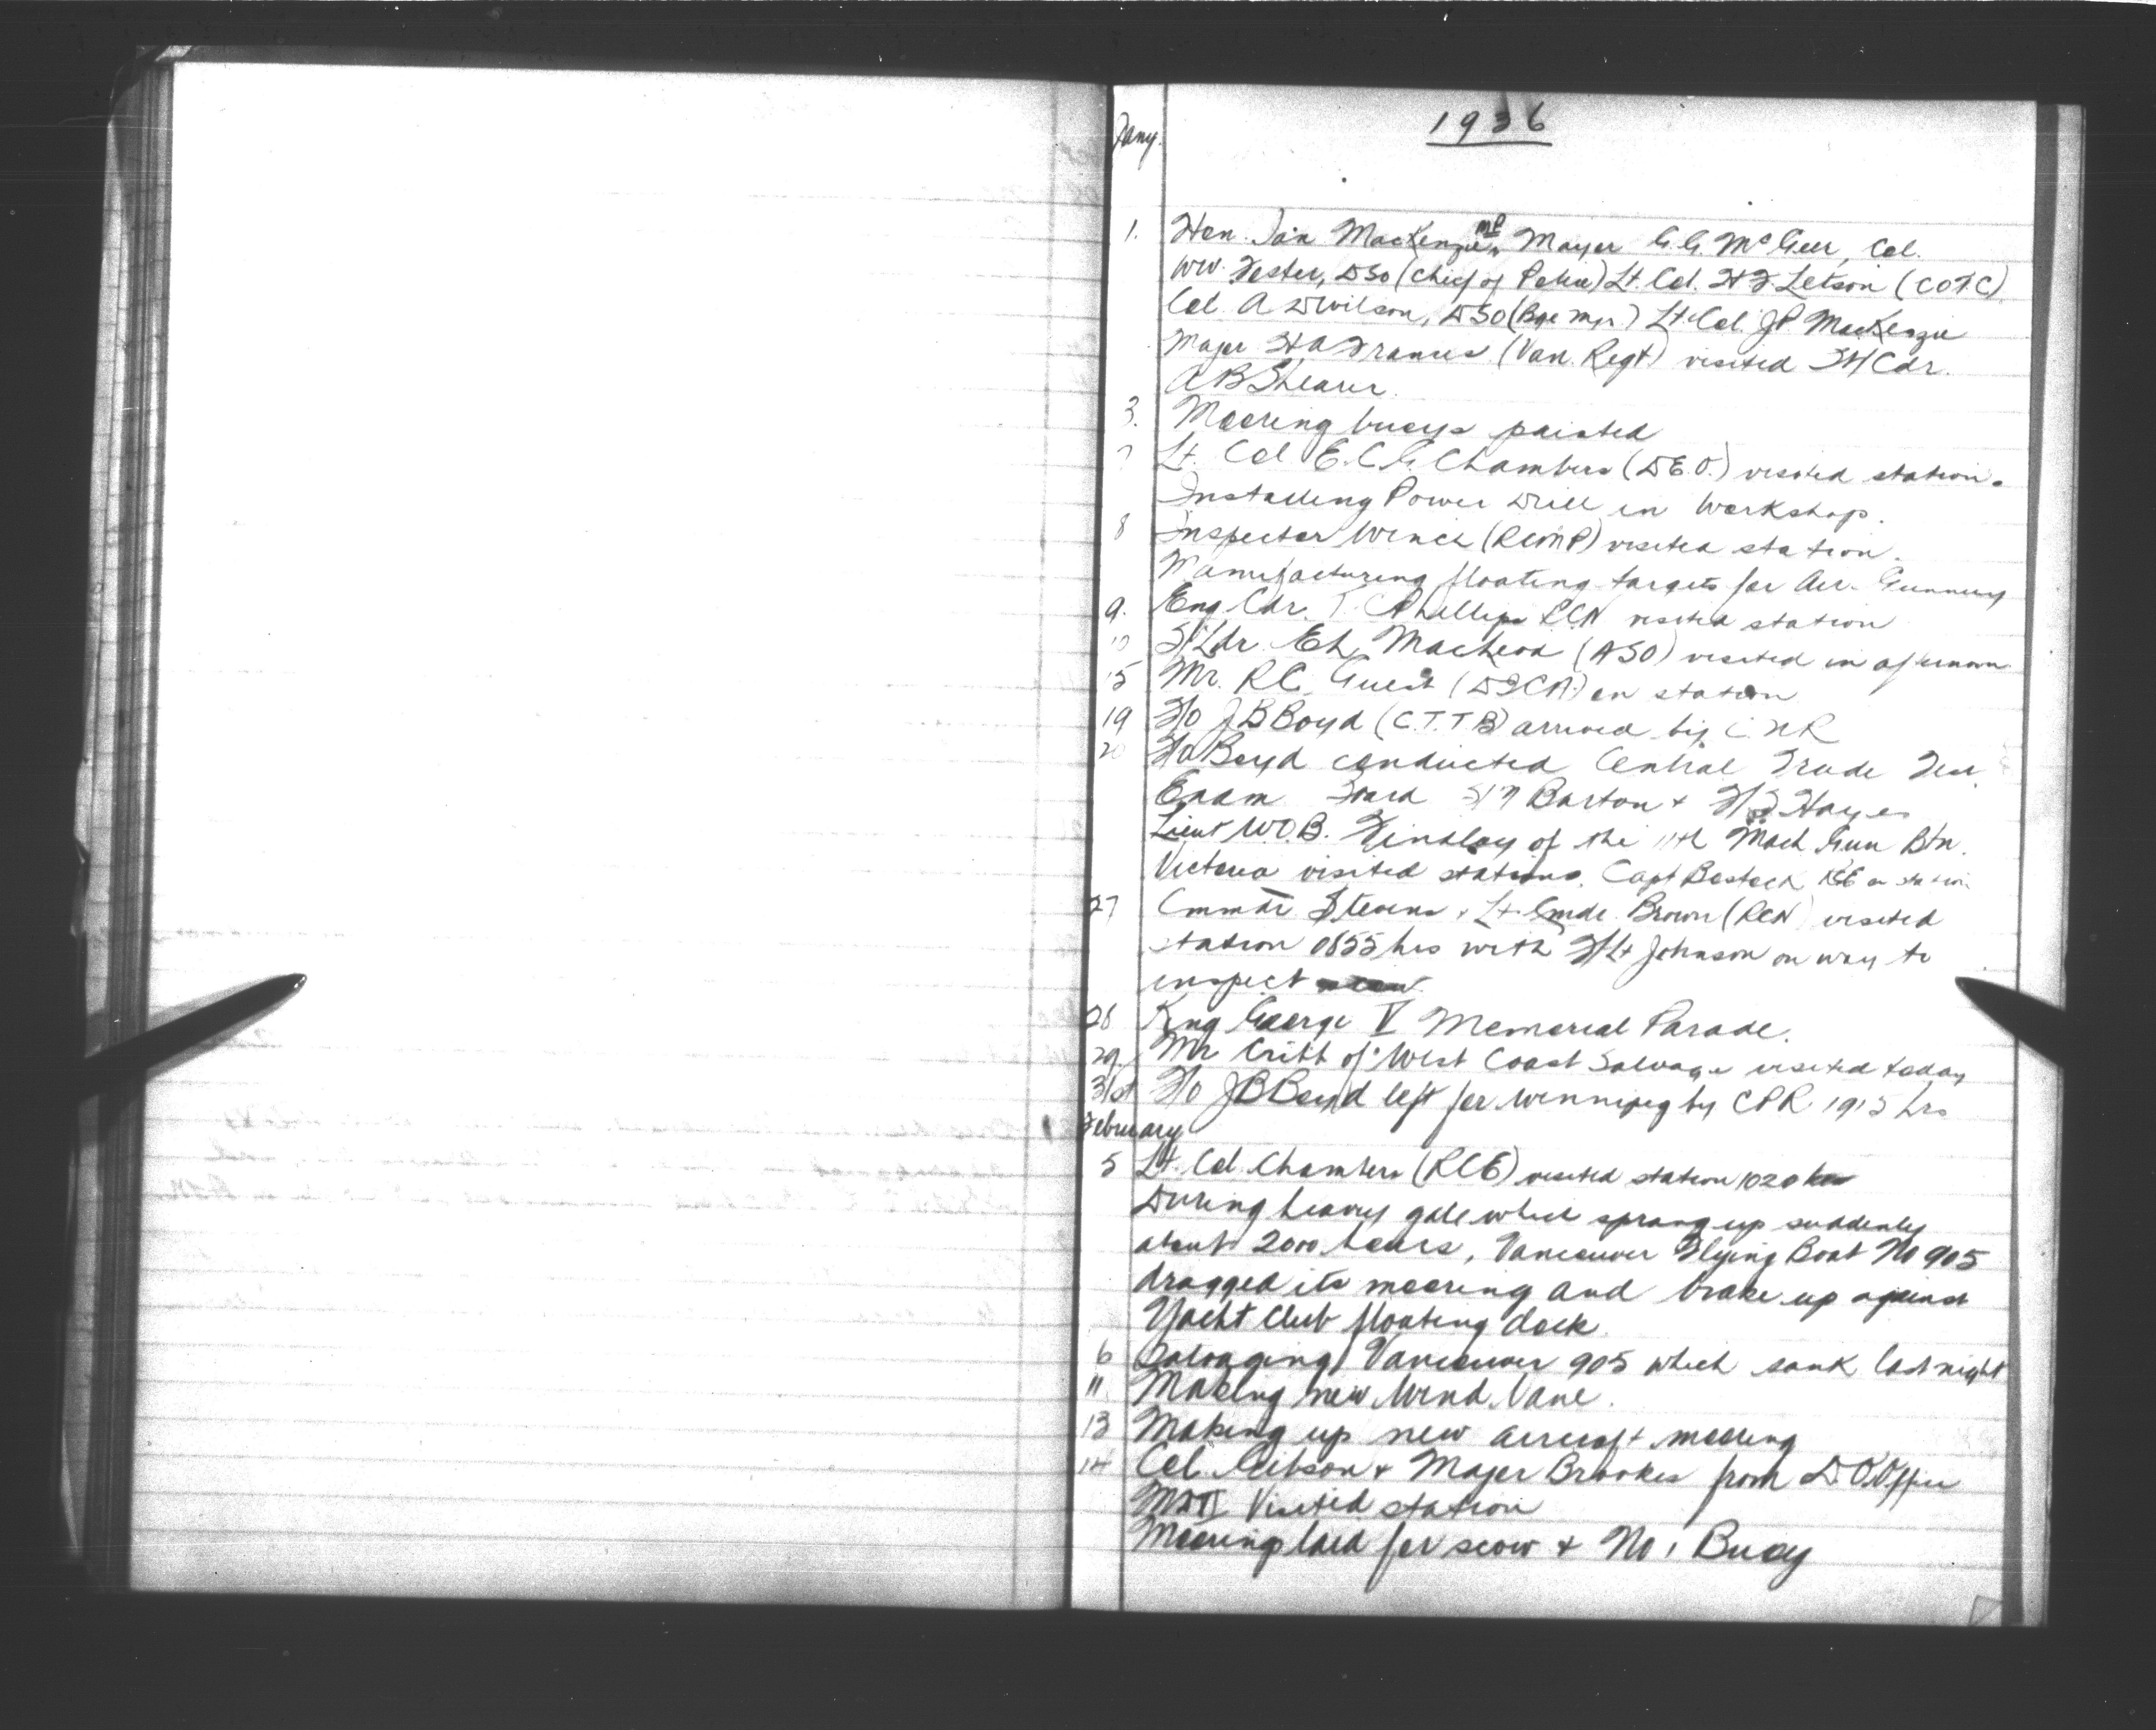 1936
Jany.
1. Hon. Ian MacKenzie MP, Mayor G.G. McGeer, Col.
WW. Foster, DSO (Chief of Police) Lt. Col. H F. Letson (COTC)
Col. A D Wilson, DSO (Bge Mjr) Lt. Col. JP MacKenzie
Major H A Francis (Van. Regt) visited S/Ldr.
A B Shearer.
3. Mooring buoys painted
7 Lt. Col E.C.G. Chambers (D.E.O.) visited station.
Installing Power Drill in Workshop.
8 Inspector Winch (RCMP) visited station.
Manufacturing floating targets for Air Gunnery
9. Eng Cdr. T. C Phillips RCN visited station
10 S/Ldr. E L Macleod (ASO) visited in afternoon
15 Mr. RC Guest (DICA) on station
19 F/O J B Boyd (C.T.T.B) arrived by C.N.R
20 F/O Boyd conducted Central Trade Test
Exam Board Barton + Hayes
Lieut W.O.B. Findlay of the 11th Mach Gun Btn.
Victoria visited station. Capt Bostock RCE on station
27 Commdr Stevens + Lt. Cmdr. Brown (RCN) visited
station 0855 hrs with F/Lt Johnson on way to
inspect
28 King George V Memorial Parade.
29. Mr Cribb of West Coast Salvage visited today
31st F/O JB Boyd left for Winnipeg by CPR 1915 hrs
February
5 Lt. Col. Chambers (RCE) visited station 1020 hrs
During heavy gale which sprang up suddenly
about 2000 hours, Vancouver Flying Boat No 905
dragged its mooring and broke up against
Yacht Club floating dock.
6 Salvaging Vancouver 905 which sank last night
11 Making new Wind Vane.
13 Making up new aircraft mooring
14 Col. Gibson + Major Brookes from D.O. Office
MD 11 Visited station
Mooring laid for scow + No 1 Buoy